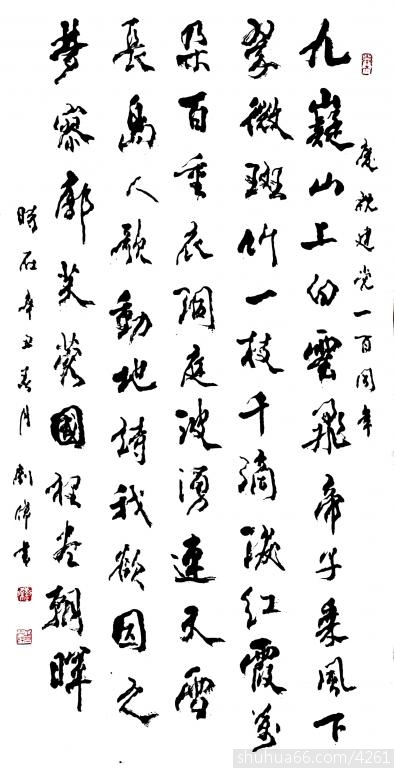 慶祝建党一百周年
九嶷山上白雲飛帝子乘風下
翠微斑竹一枝千滴淚紅霞萬
朵百重衣洞庭波湧連天雪
長島人歌動地詩我欲因之
夢寥廓芙蓉國裡盡朝暉
時在辛丑春月劉偉書
shuhua66.com/4261